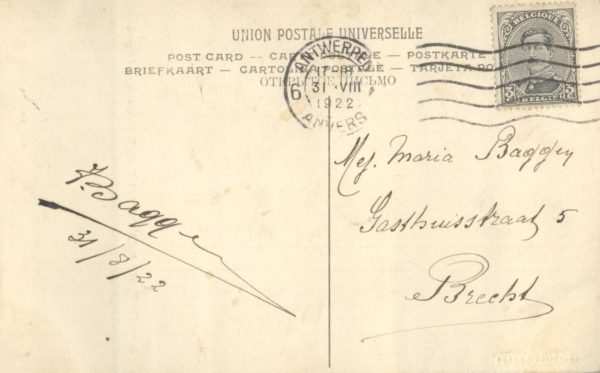 UNION POSTALE UNIVERSELLE
POST CARD -- CARTE POSTALE -- POSTKARTE
BRIEFKAART -- CARTOLINA POSTALE -- TARJETA PO
ОТКРЫТОЕ ПИСЬМО
ANTWERPEN
6
17-18
31 VIII
1922
ANVERS
BELGIQUE
BELGIE
Mej. Maria Baggen
Gasthuisstraat 5
Brecht
Baggen
31/8/22